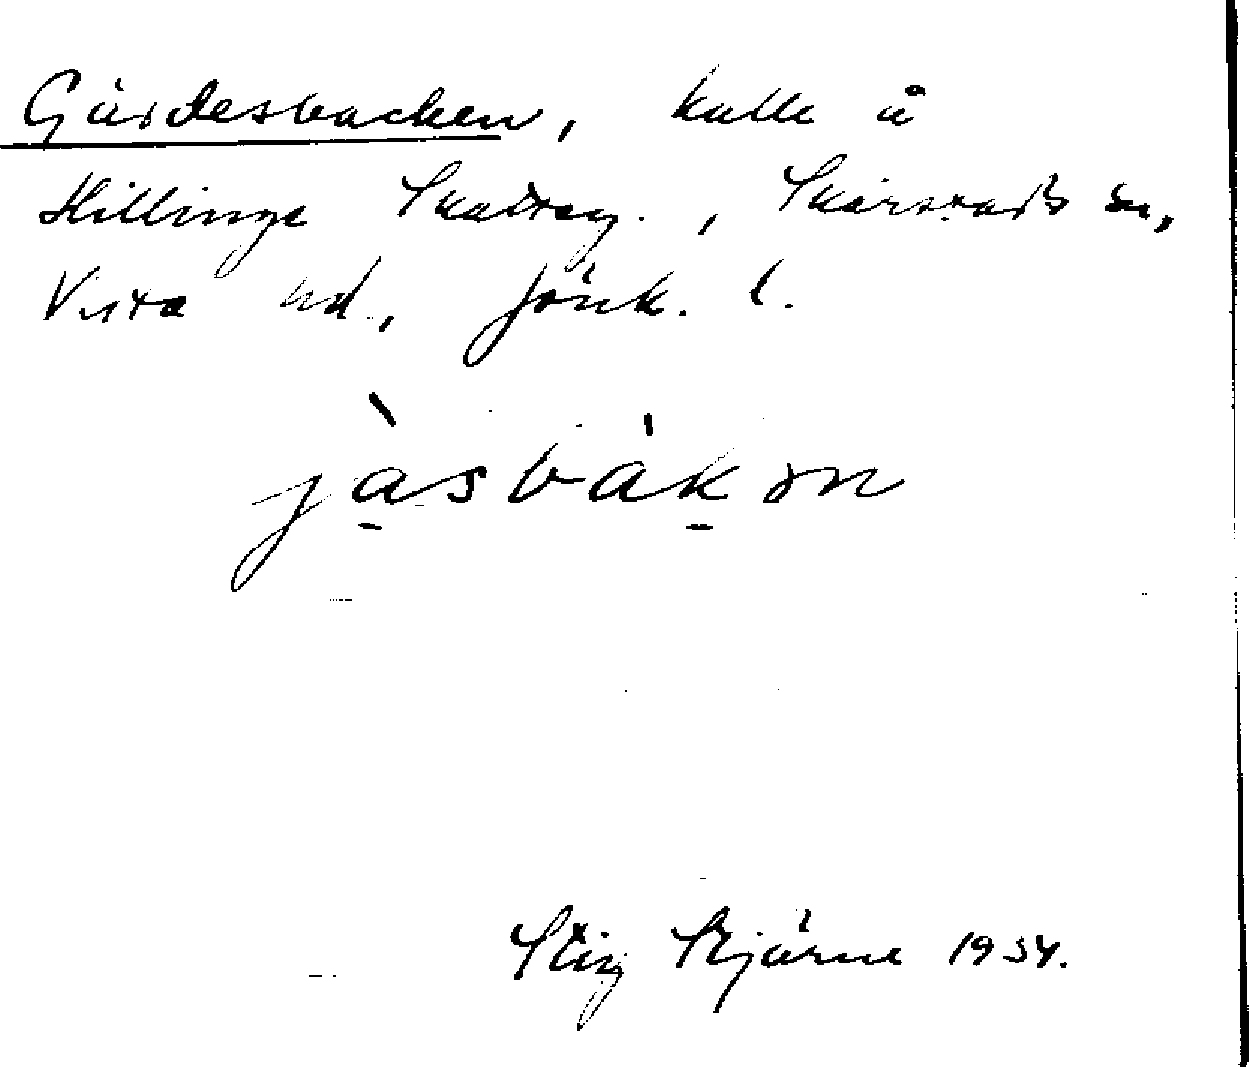 Gärdesbacken, kulle å
Hillinge Skatteg., Skärstads sn,
Vista hd., Jönk. l.
jàsbák ən
Stig Stjärne 1934.